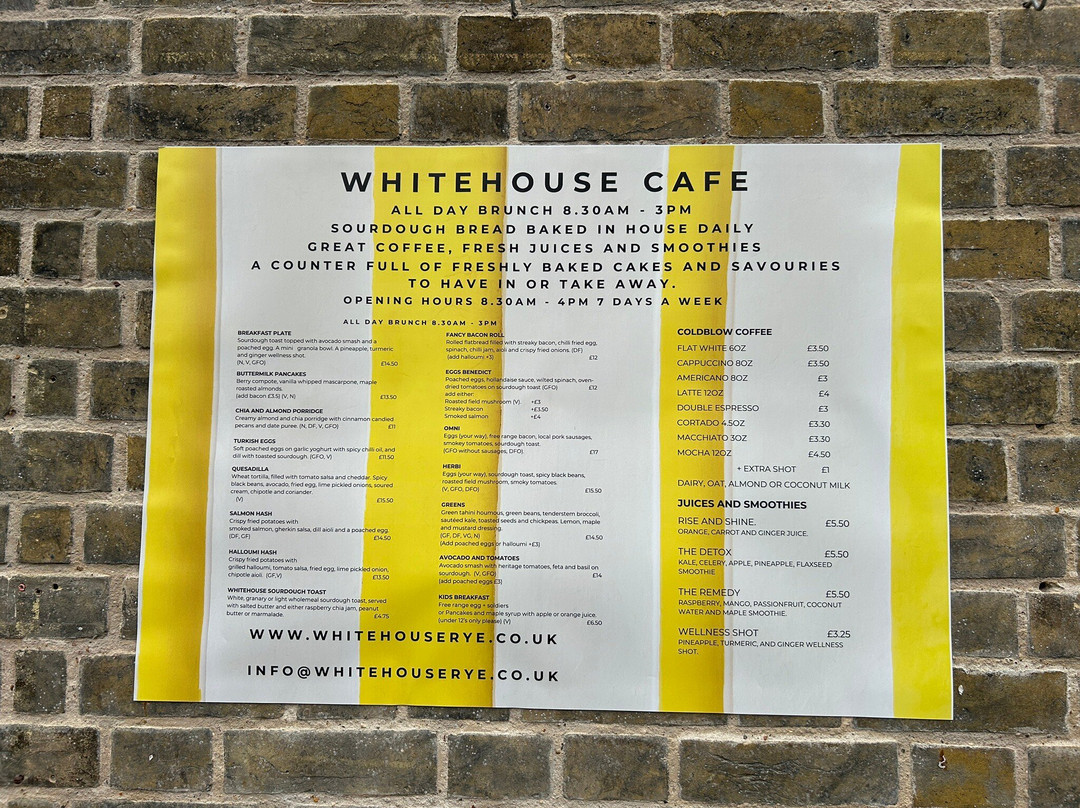 WHITEHOUSE CAFE
ALL DAY BRUNCH 8.30AM - 3PM
SOURDOUGH BREAD BAKED IN HOUSE DAILY
GREAT COFFEE, FRESH JUICES AND SMOOTHIES
A COUNTER FULL OF FRESHLY BAKED CAKES AND SAVOURIES
TO HAVE IN OR TAKE AWAY.
OPENING HOURS 8.30AM - 4PM 7 DAYS A WEEK
ALL DAY BRUNCH 8.30AM - 3PM
BREAKFAST PLATE
Sourdough toast topped with avocado smash and a
poached egg. A mini granola bowl. A pineapple, turmeric
and ginger wellness shot.
(N, V, GFO) £14.50
BUTTERMILK PANCAKES
Berry compote, vanilla whipped mascarpone, maple
roasted almonds.
(add bacon £3.5) (V, N) £13.50
CHIA AND ALMOND PORRIDGE
Creamy almond and chia porridge with cinnamon candied
pecans and date puree. (N, DF, V, GFO) £11
TURKISH EGGS
Soft poached eggs on garlic yoghurt with spicy chilli oil, and
dill with toasted sourdough. (GFO, V) £11.50
QUESADILLA
Wheat tortilla, filled with tomato salsa and cheddar. Spicy
black beans, avocado, fried egg, lime pickled onions, soured
cream, chipotle and coriander.
(V) £15.50
SALMON HASH
Crispy fried potatoes with
smoked salmon, gherkin salsa, dill aioli and a poached egg.
(DF, GF) £14.50
HALLOUMI HASH
Crispy fried potatoes with
grilled halloumi, tomato salsa, fried egg, lime pickled onion,
chipotle aioli. (GF,V) £13.50
WHITEHOUSE SOURDOUGH TOAST
White, granary or light wholemeal sourdough toast, served
with salted butter and either raspberry chia jam, peanut
butter or marmalade. £4.75
FANCY BACON ROLL
Rolled flatbread filled with streaky bacon, chilli fried egg,
spinach, chilli jam, aioli and crispy fried onions. (DF)
(add halloumi +3) £12
EGGS BENEDICT
Poached eggs, hollandaise sauce, wilted spinach, oven-
dried tomatoes on sourdough toast (GFO) £12
add either:
Roasted field mushroom (V). +£3
Streaky bacon +£3.50
Smoked salmon +£4
OMNI
Eggs (your way), free range bacon, local pork sausages,
smokey tomatoes, sourdough toast.
(GFO without sausages, DFO) £17
HERBI
Eggs (your way), sourdough toast, spicy black beans,
roasted field mushroom, smoky tomatoes.
(V, GFO, DFO) £15.50
GREENS
Green tahini houmous, green beans, tenderstem broccoli,
sautéed kale, toasted seeds and chickpeas. Lemon, maple
and mustard dressing.
(GF, DF, VG, N) £14.50
(Add poached eggs or halloumi +£3)
AVOCADO AND TOMATOES
Avocado smash with heritage tomatoes, feta and basil on
sourdough. (V, GFO) £14
(add poached eggs £3)
KIDS BREAKFAST
Free range egg + soldiers
or Pancakes and maple syrup with apple or orange juice.
(under 12's only please) (V) £6.50
COLDBLOW COFFEE
FLAT WHITE 6OZ £3.50
CAPPUCCINO 8OZ £3.50
AMERICANO 8OZ £3
LATTE 12OZ £4
DOUBLE ESPRESSO £3
CORTADO 4.5OZ £3.30
MACCHIATO 3OZ £3.30
MOCHA 12OZ £4.50
+ EXTRA SHOT £1
DAIRY, OAT, ALMOND OR COCONUT MILK
JUICES AND SMOOTHIES
RISE AND SHINE. £5.50
ORANGE, CARROT AND GINGER JUICE.
THE DETOX £5.50
KALE, CELERY, APPLE, PINEAPPLE, FLAXSEED
SMOOTHIE
THE REMEDY £5.50
RASPBERRY, MANGO, PASSIONFRUIT, COCONUT
WATER AND MAPLE SMOOTHIE.
WELLNESS SHOT £3.25
PINEAPPLE, TURMERIC, AND GINGER WELLNESS
SHOT.
WWW.WHITEHOUSERYE.CO.UK
INFO@WHITEHOUSERYE.CO.UK